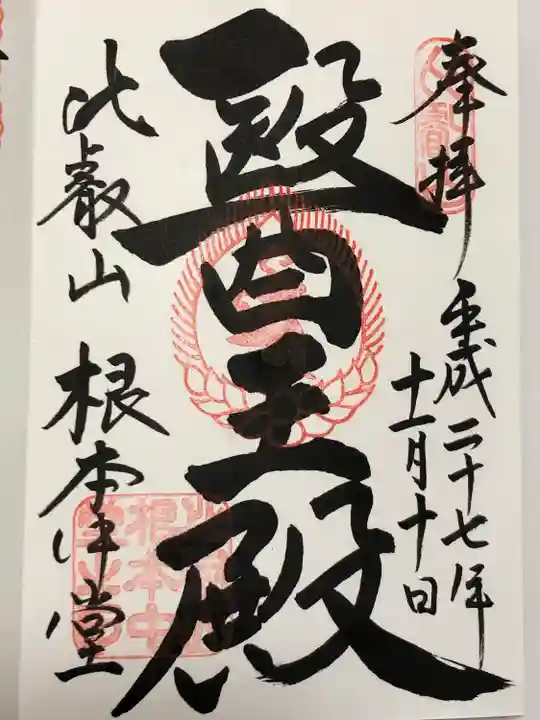 奉拝
平成二十七年
十一月十日
醫王殿
比叡山 根本中堂